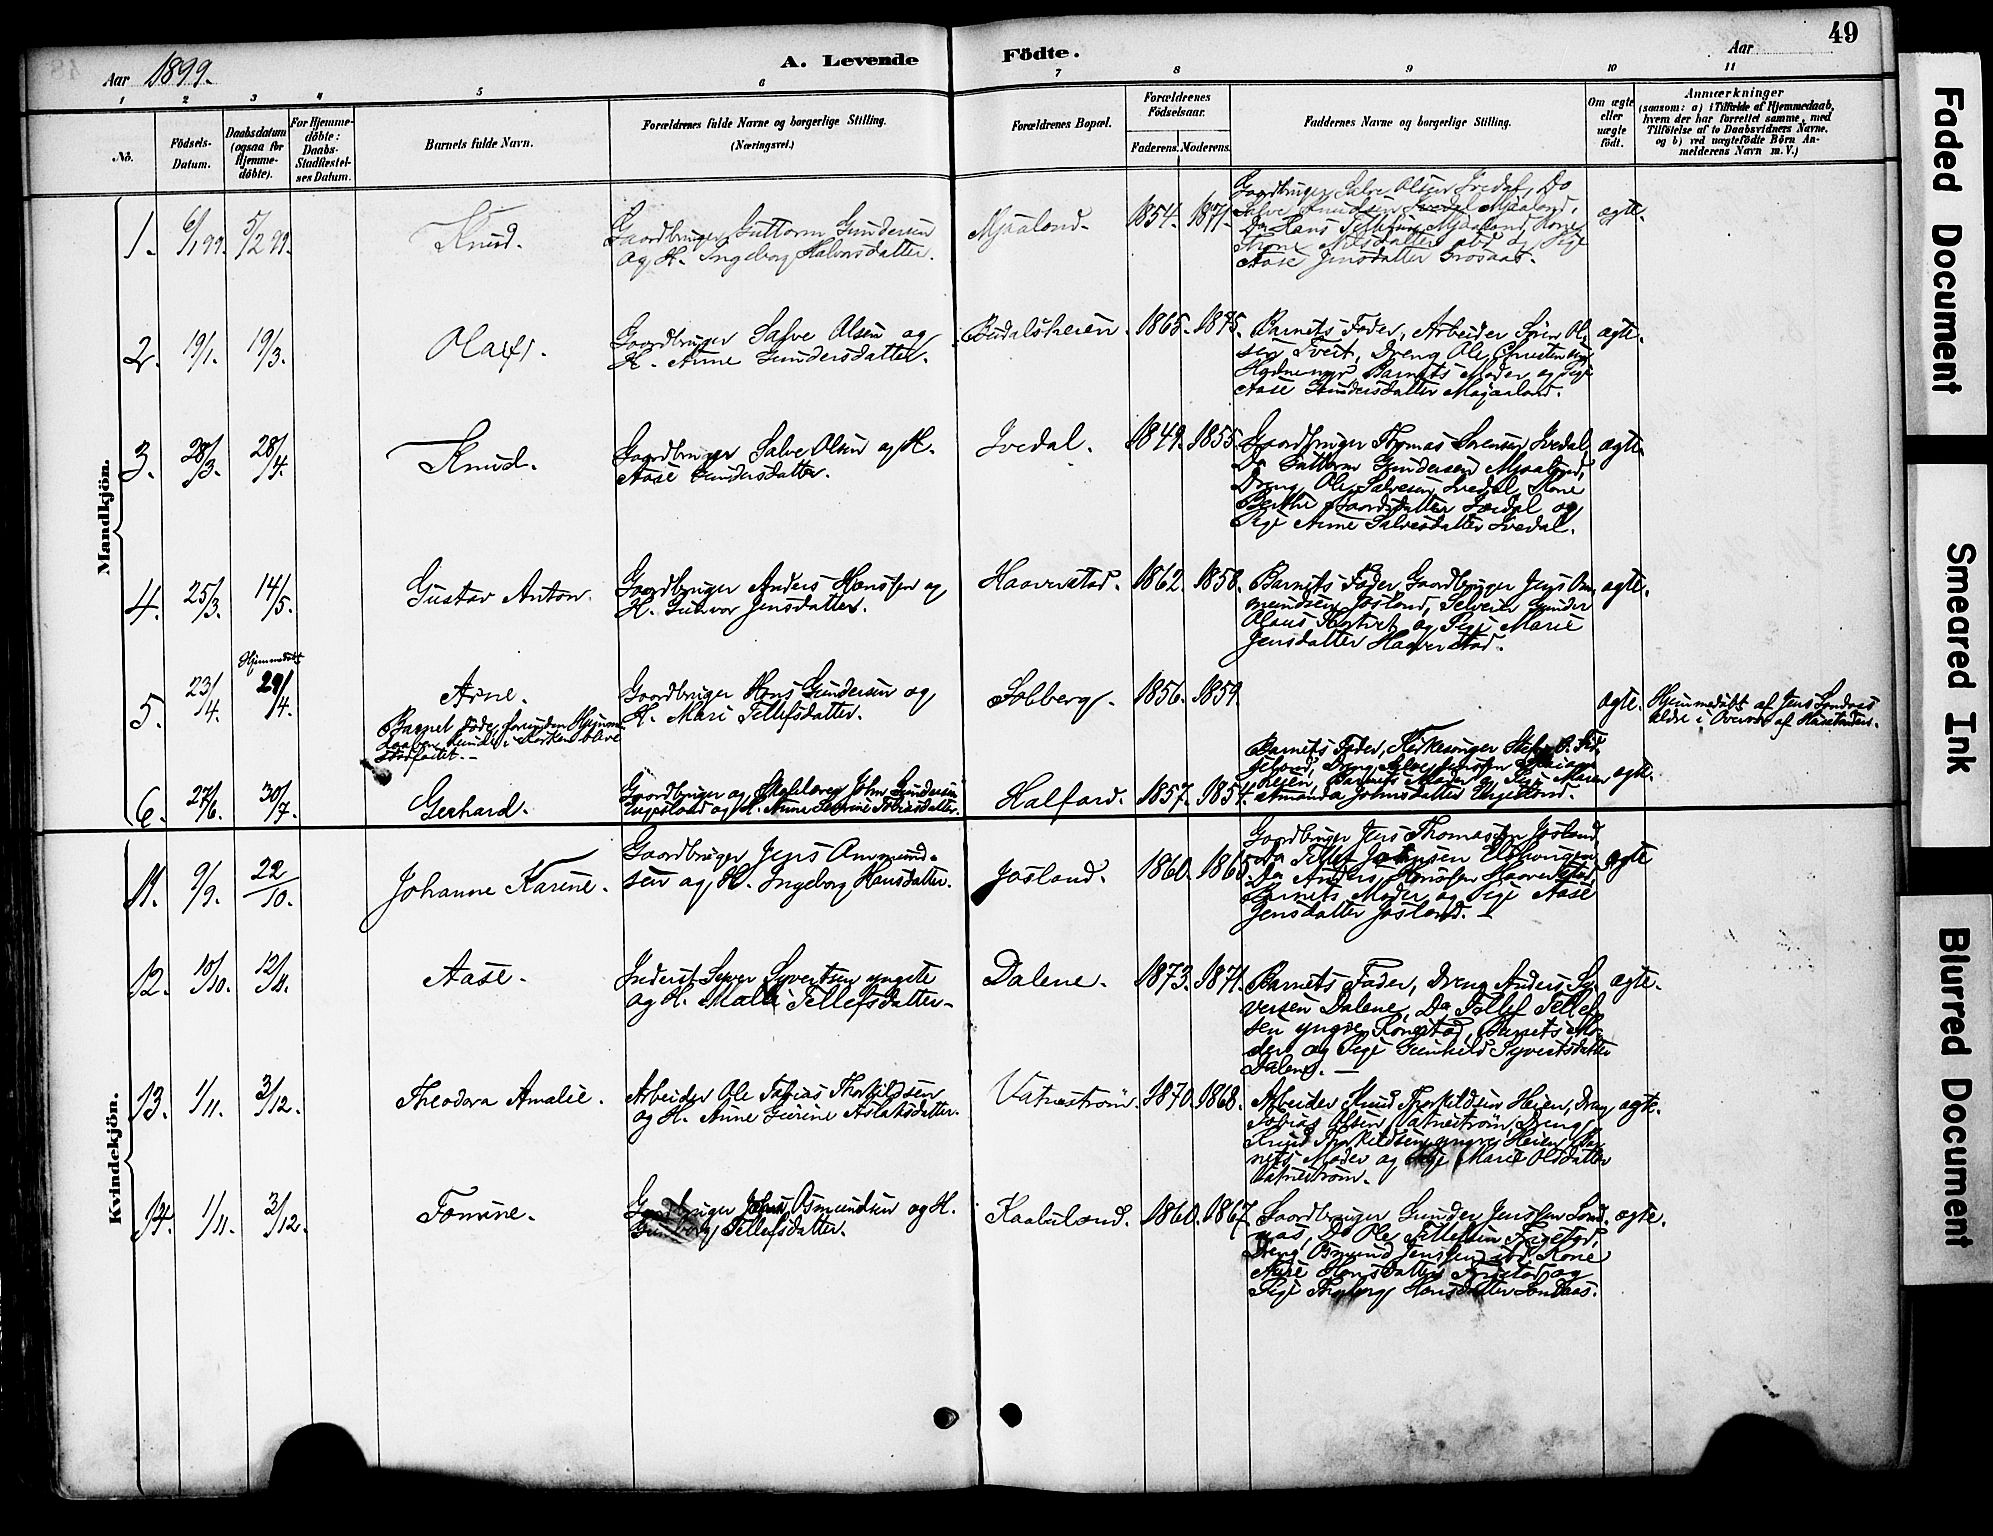 49
Aar 1899.
A. Levende Födte.
Aar
1 2 3 4 5 6 7 8 9 10 11
No.
Födsels-Datum.
Daabsdatum (ogsaa for Hjemme-döbte).
For Hjemme-döbte: Daabs-Stadfestel-ses Datum.
Barnets fulde Navn.
Forældrenes fulde Navne og borgerlige Stilling.
(Næringsvei.)
Forældrenes Bopæl.
Forældrenes Födselsaar.
Faderens. Moderens.
Faddernes Navne og borgerlige Stilling.
Om ægte eller uægte födt.
Anmærkninger
(saasom: a) i Tilfælde af Hjemmedaab,
hvem der har forrettet samme, med
Tilföielse af to Daabsvidners Navne,
og b) ved uægtefödte Börn An-
melderens Navn m. V.)
Mandkjön.
1. 6/1 99. 5/2 99. Knud. Gaardbruger Guttorm Gundersen
og H. Ingeborg Halvorsdatter.
Mjaaland. 1854. 1871.
Gaardbruger Salve Olsen Ivedal, Do
Salve Knudsen Mjaaland,
Do Hans Tellefsen Mjaaland, Kone
Throne Nilsdatter ibd og Pige
Aase Jensdatter Grosaas.
ægte.
2. 19/1. 19/3. Olaf. Gaardbruger Salve Olsen og
H. Anne Gundersdatter.
1865. 1875.
Barnets Fader, Arbeider Ol-
sen Tveit, Dreng Ole Christensen
Barnets Moder og Pige
Aase Gundersdatter
ægte.
3. 28/3. 28/4. Knud. Gaardbruger Salve Olsen og H.
Aase Gundersdatter.
Ivedal. 1849. 1855.
Gaardbruger Thomas Sørensen Ivedal,
Do Guttorm Gundersen Mjaaland,
Dreng Ole Salvesen Ivedal, Kone
Berthe Ivedal og
Pige Anne Salvesdatter Ivedal.
ægte.
4. 25/3. 14/5. Gustav Anton. Gaardbruger Anders Hansen og
H. Gunvor Jensdatter.
Haaverstad. 1862. 1858.
Barnets Fader, Gaardbruger Jens Om-
mundsen Josland, Selveier Gunder
Olaus og Pige Marie
Jensdatter Haaverstad.
ægte.
5. 23/4. Hjemmedöbt 29/4. Arne.
Barnet döde, forinden Hjemme-
daaben kunde i Kirken blive
stadfæstet. -
Gaardbruger Hans Gundersen og
H. Mari Tellefsdatter.
Solberg. 1856. 1859.
ægte.
Hjemmedöbt af Jens
ældre i Overvær af
6. 27/6. 30/7. Gerhard. Gaardbruger og Skolelærer John Gundersen
og H. Anne
Halfard. 1857. 1854.
Barnets Fader, Kirkesanger
Barnets Moder og Pige Maren
Amanda Johnsdatter
ægte.
Kvindekjön.
11. 9/9. 22/10. Johanne Karine. Gaardbruger Jens Ommund-
sen og H. Ingeborg Hansdatter.
Josland. 1860. 1865.
Gaardbruger Jens Thomassen Josland
Do Tellef Jensen
Do Anders Hansen Haaverstad
Barnets Moder og Pige Aase
Jensdatter Josland.
ægte
12. 10/10. Aase. Inderst Syvertsen yngste
og H. Malli Tellefsdatter.
Dalene. 1873. 1871.
Barnets Fader, Dreng Anders Sy-
vertsen Dalene, Do Tellef Tellef-
sen yngre Barnets Mo-
der og Pige Gunhild Syvertsdatter
Dalene. -
ægte.
13. 1/11. 3/12. Theodora Amalie. Arbeider Ole Tobias Thorkildsen
og H. Anne Gurine Aslaksdatter.
Vatneström. 1870. 1868.
Arbeider Knud Thorkildsen Heien, Dreng
Tobias Olsen Vatneström, Dreng
Knud Thorkildsen yngre Heien, Bar-
nets Moder og Pige Marie Olsdatter
Vatneström.
ægte.
14. 1/11. 3/12. Tomine. Gaardbruger Osmundsen og H.
Gunborg Tellefsdatter.
1860. 1867.
Gaardbruger Gunder Jensen Lond-
aas, Do Ole Tellefsen
Dreng Osmund Jensen ibd, Kone
Aase Hansdatter og
Pige Thorborg Hansdatter Londaas.
ægte.
Faded Document
Smeared Ink
Blurred Document